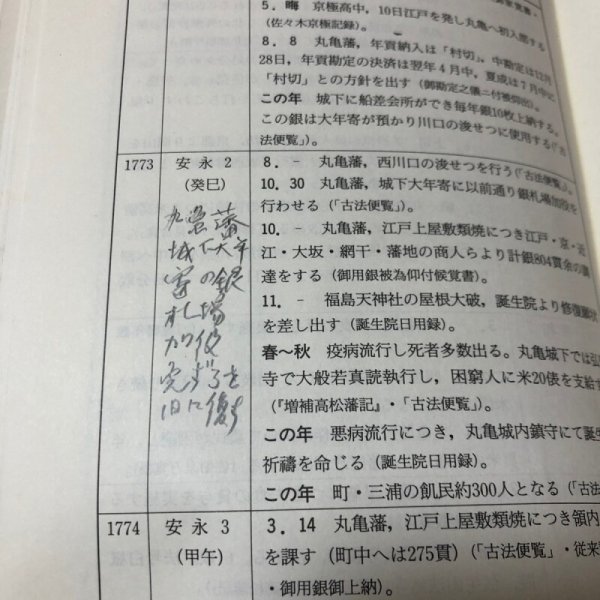 5. 晦 京極高中，10日江戸を発し丸亀へ初入部する
(佐々木京極記録)。
8. 8 丸亀藩，年貢納入は「村切」，中勘定は12月
28日，年貢勘定の決済は翌年4月中，夏成は7月中に
「村切」との方針を出す
この年 城下に船差会所ができ毎年銀10枚上納する。
この銀は大年寄が預かり川口の浚せつに使用する(「古
法便覧」)。
1773
安永2
(癸巳)
8. － 丸亀藩，西川口の浚せつを行う(「古法便覧」)。
10. 30 丸亀藩，城下大年寄に以前通り銀札場加役を
行わせる(「古法便覧」)。
10. － 丸亀藩，江戸上屋敷類焼につき江戸・京・近
江・大坂・網干・藩地の商人らより計銀804貫余の調
達をする(御用銀被為仰付候覚書)。
11. － 福島天神社の屋根大破，誕生院より修復願状
を差し出す(誕生院日用録)。
春～秋 疫病流行し死者多数出る。丸亀城下では弘
寺で大般若真読執行し，困窮人に米20俵を支給す
(『増補高松藩記』・「古法便覧」)。
この年 悪病流行につき，丸亀城内鎮守にて誕生
祈禱を命じる(誕生院日用録)。
この年 町・三浦の飢民約300人となる(「古法便覧」
丸亀藩
城下大年
寄の銀
札場
加役
免ずるを
旧に復す
1774
安永3
(甲午)
3. 14 丸亀藩，江戸上屋敷類焼につき領内
を課す(町中へは275貫)(「古法便覧」・従来
・御用銀御上納)。